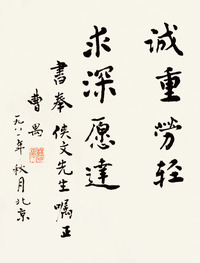 诚重劳轻
求深愿达
書奉
侠文先生嘱正
曹禺
一九八一年秋月北京